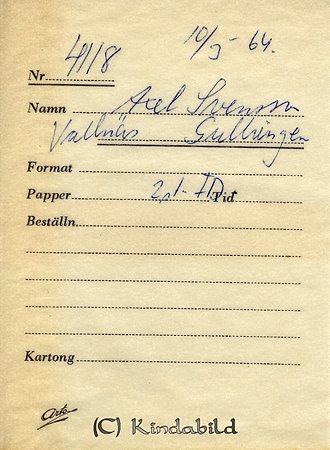 10/5-64.
Nr 4118
Namn Axel Svensson
Vallnäs Gullringen
Format
Papper 2 st. Tid
Beställn.
Kartong
(C) Kindabild